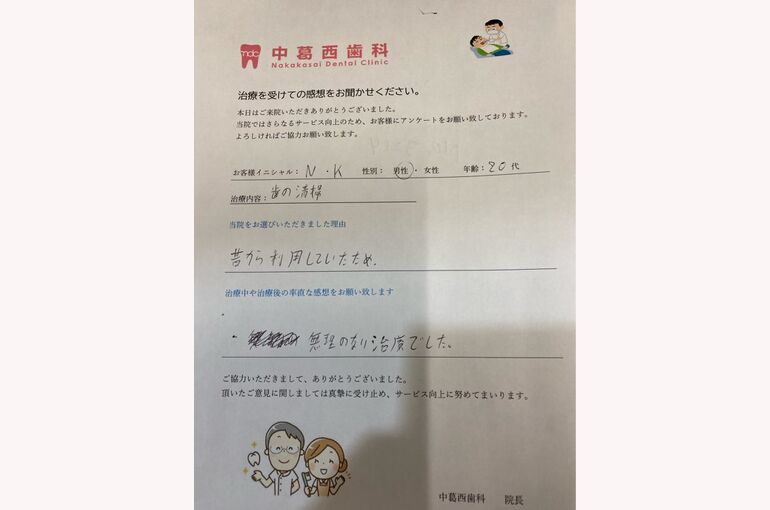 ndc 中葛西歯科
Nakakasai Dental Clinic
治療を受けての感想をお聞かせください。
本日はご来院いただきありがとうございました。
当院ではさらなるサービス向上のため、お客様にアンケートをお願い致しております。
よろしければご協力お願い致します。
お客様イニシャル： N ・ K 性別： 男性 ・ 女性 年齢： 20 代
治療内容： 歯の清掃
当院をお選びいただきました理由
昔から利用していたため.
治療中や治療後の率直な感想をお願い致します
・ 無理のない治療でした。
ご協力いただきまして、ありがとうございました。
頂いたご意見に関しましては真摯に受け止め、サービス向上に努めてまいります。
中葛西歯科 院長